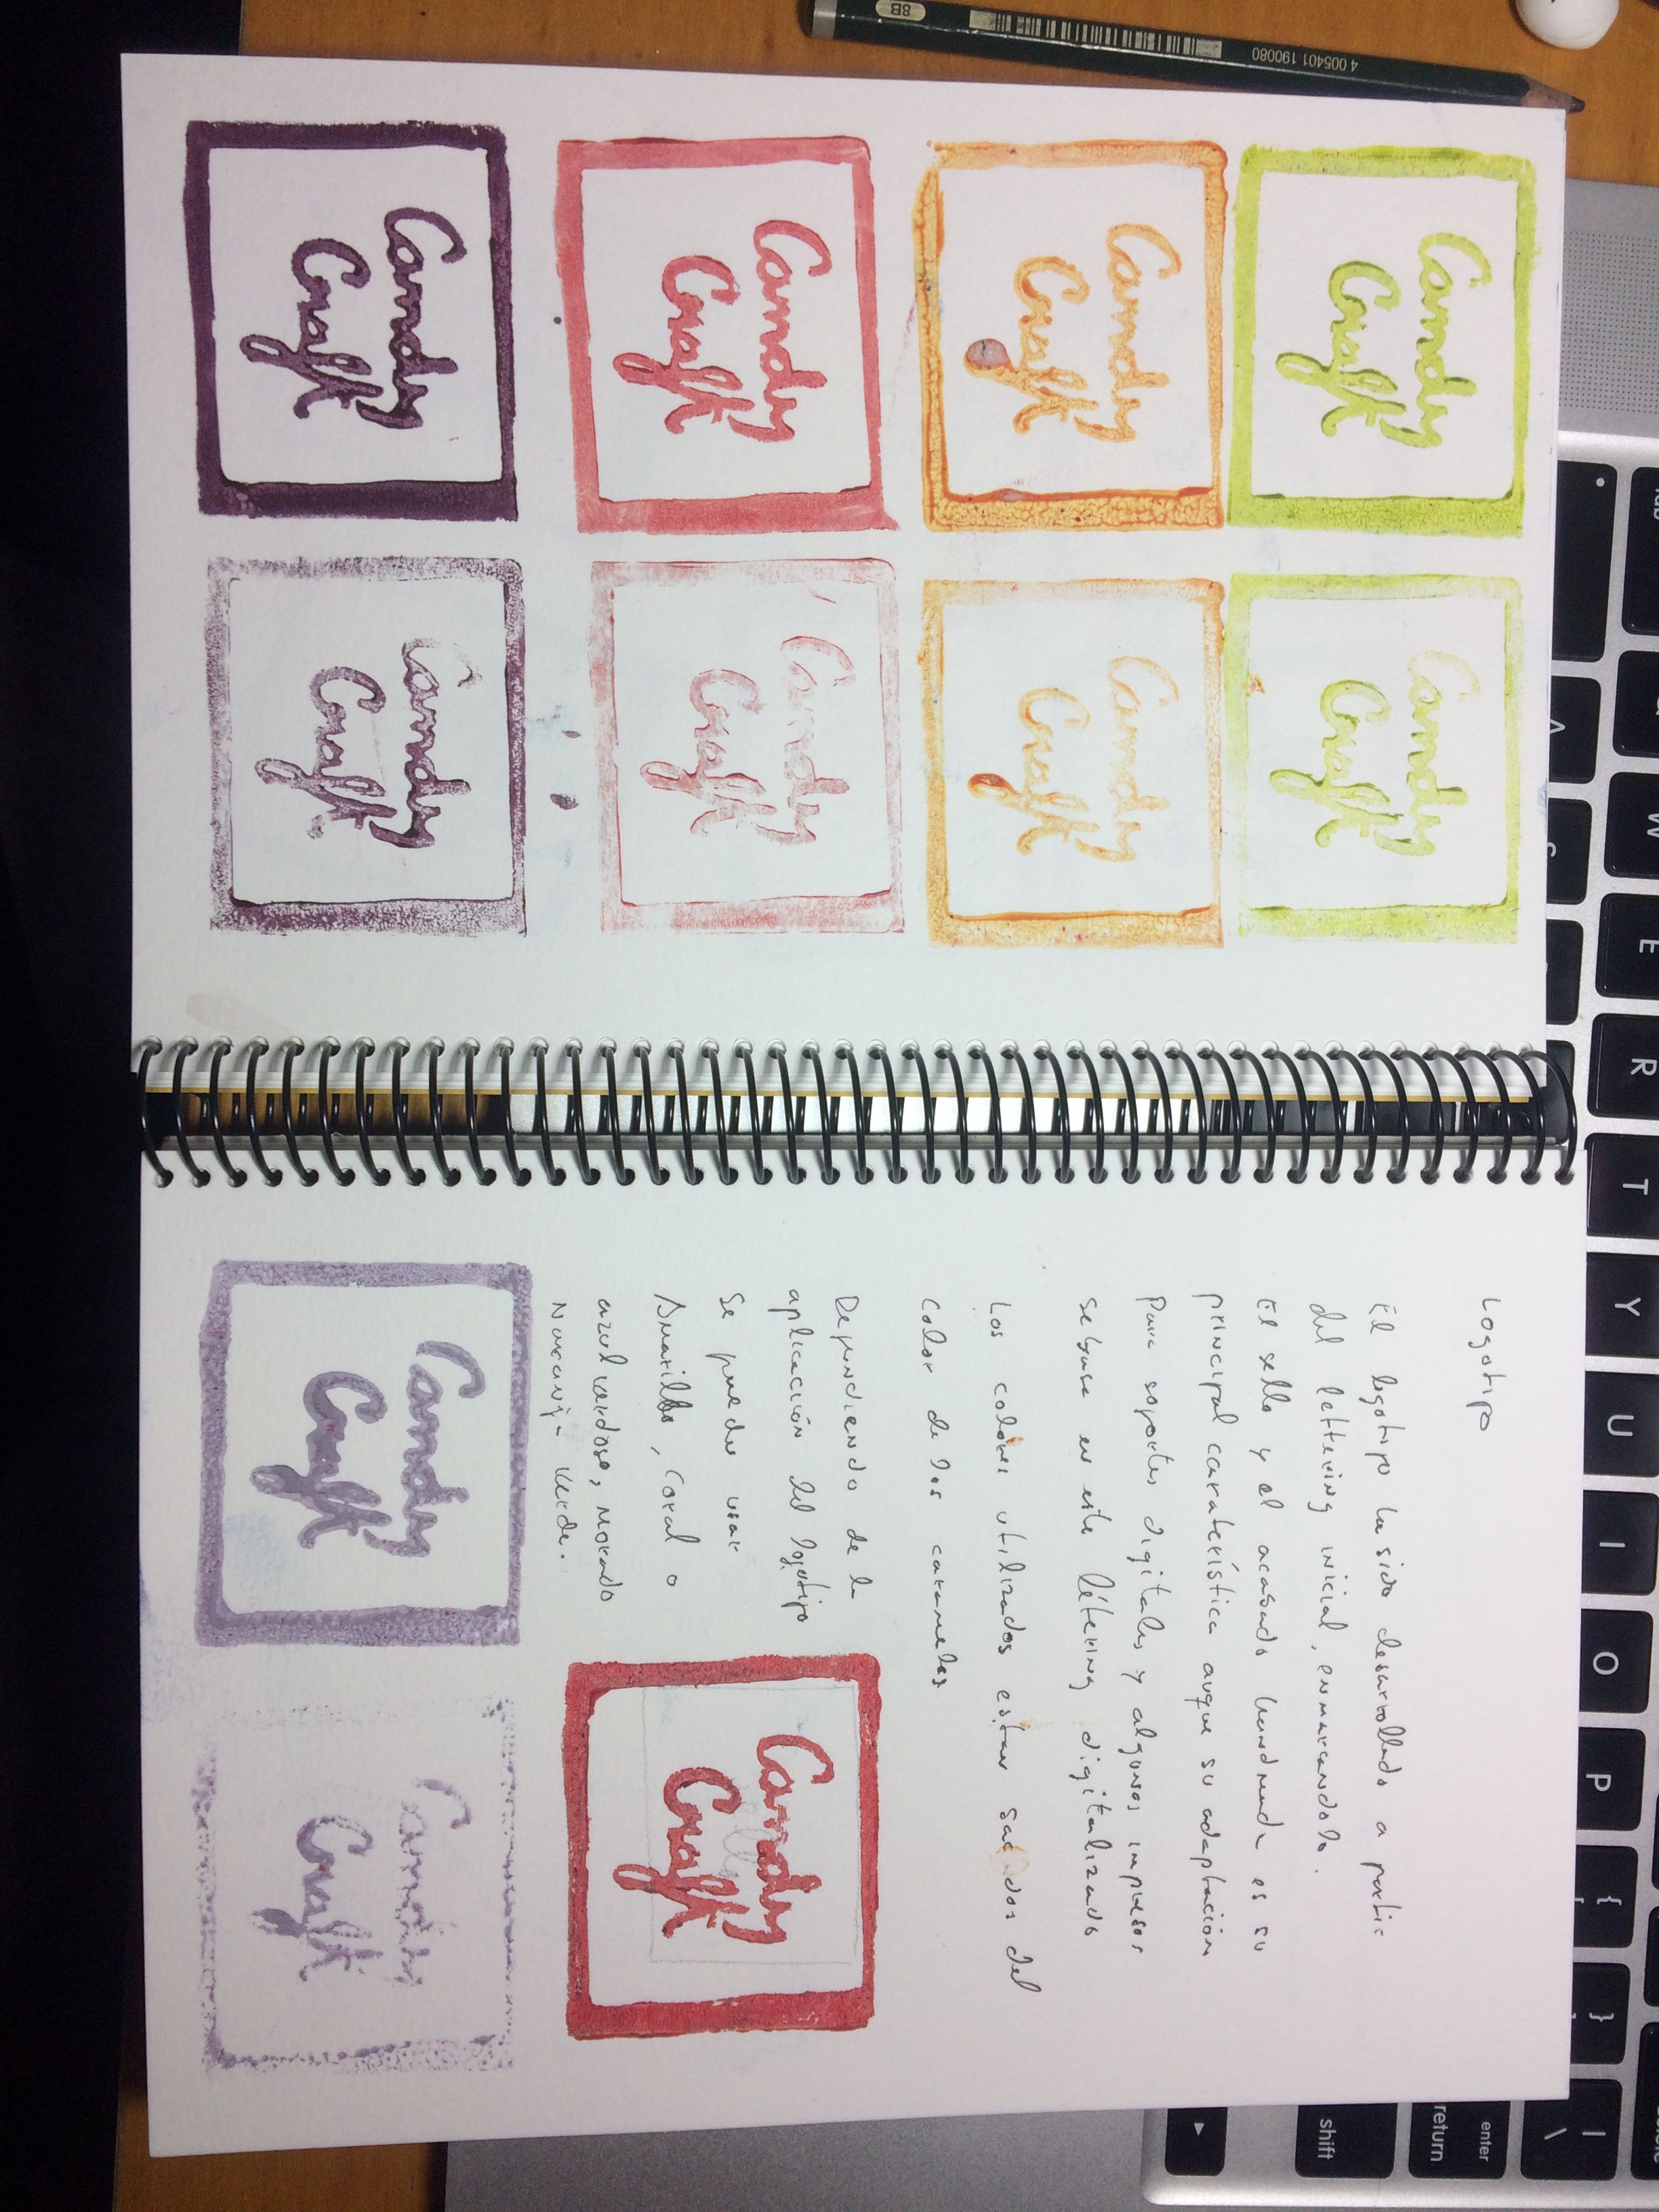 8B
4 005401 190080
Candy
Craft
Candy
Craft
Candy
Craft
Candy
Craft
Candy
Craft
Candy
Craft
Candy
Craft
Candy
Craft
Logotipo
El logotipo ha sido desarrollado a partir
del lettering inicial, enmarcandolo.
El sello y el acabado handmade es su
principal caraterística auque su adaptación
Para soportes digitales y algunos impresos
se basa en este létering digitalizado
Los colores utilizados estan sacados del
color de los caramelos
Dependiendo de la
aplicación del logotipo
se puede usar
Amarillo, coral o
azul verdoso, morado
naranja verde.
Candy
Craft
Candy
Craft
Candy
Craft
tab
A
S
W
E
R
T
Y
U
I
O
P
{
[
}
|
\
enter
return
shift